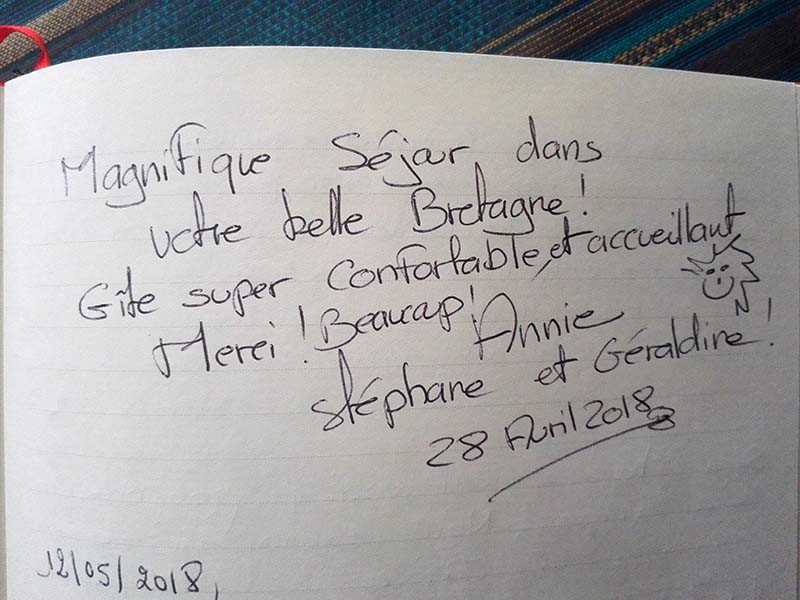 Magnifique Séjour dans
votre belle Bretagne!
Gîte super confortable, et accueillant
Merci! Beaucoup! Annie
Stéphane et Géraldine!
28 Avril 2018
12/05/2018,